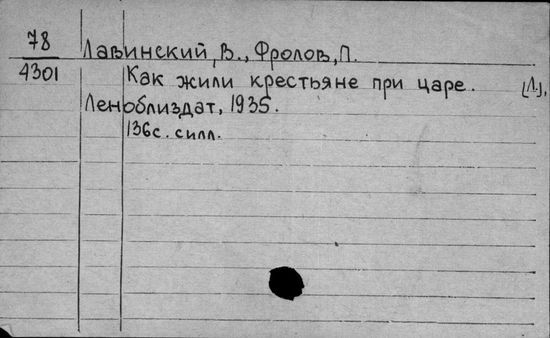 78
4301
Лавинский, В., Фролов, П.
Как жили крестьяне при царе. [Л.],
Леноблиздат, 1935.
136с. силл.